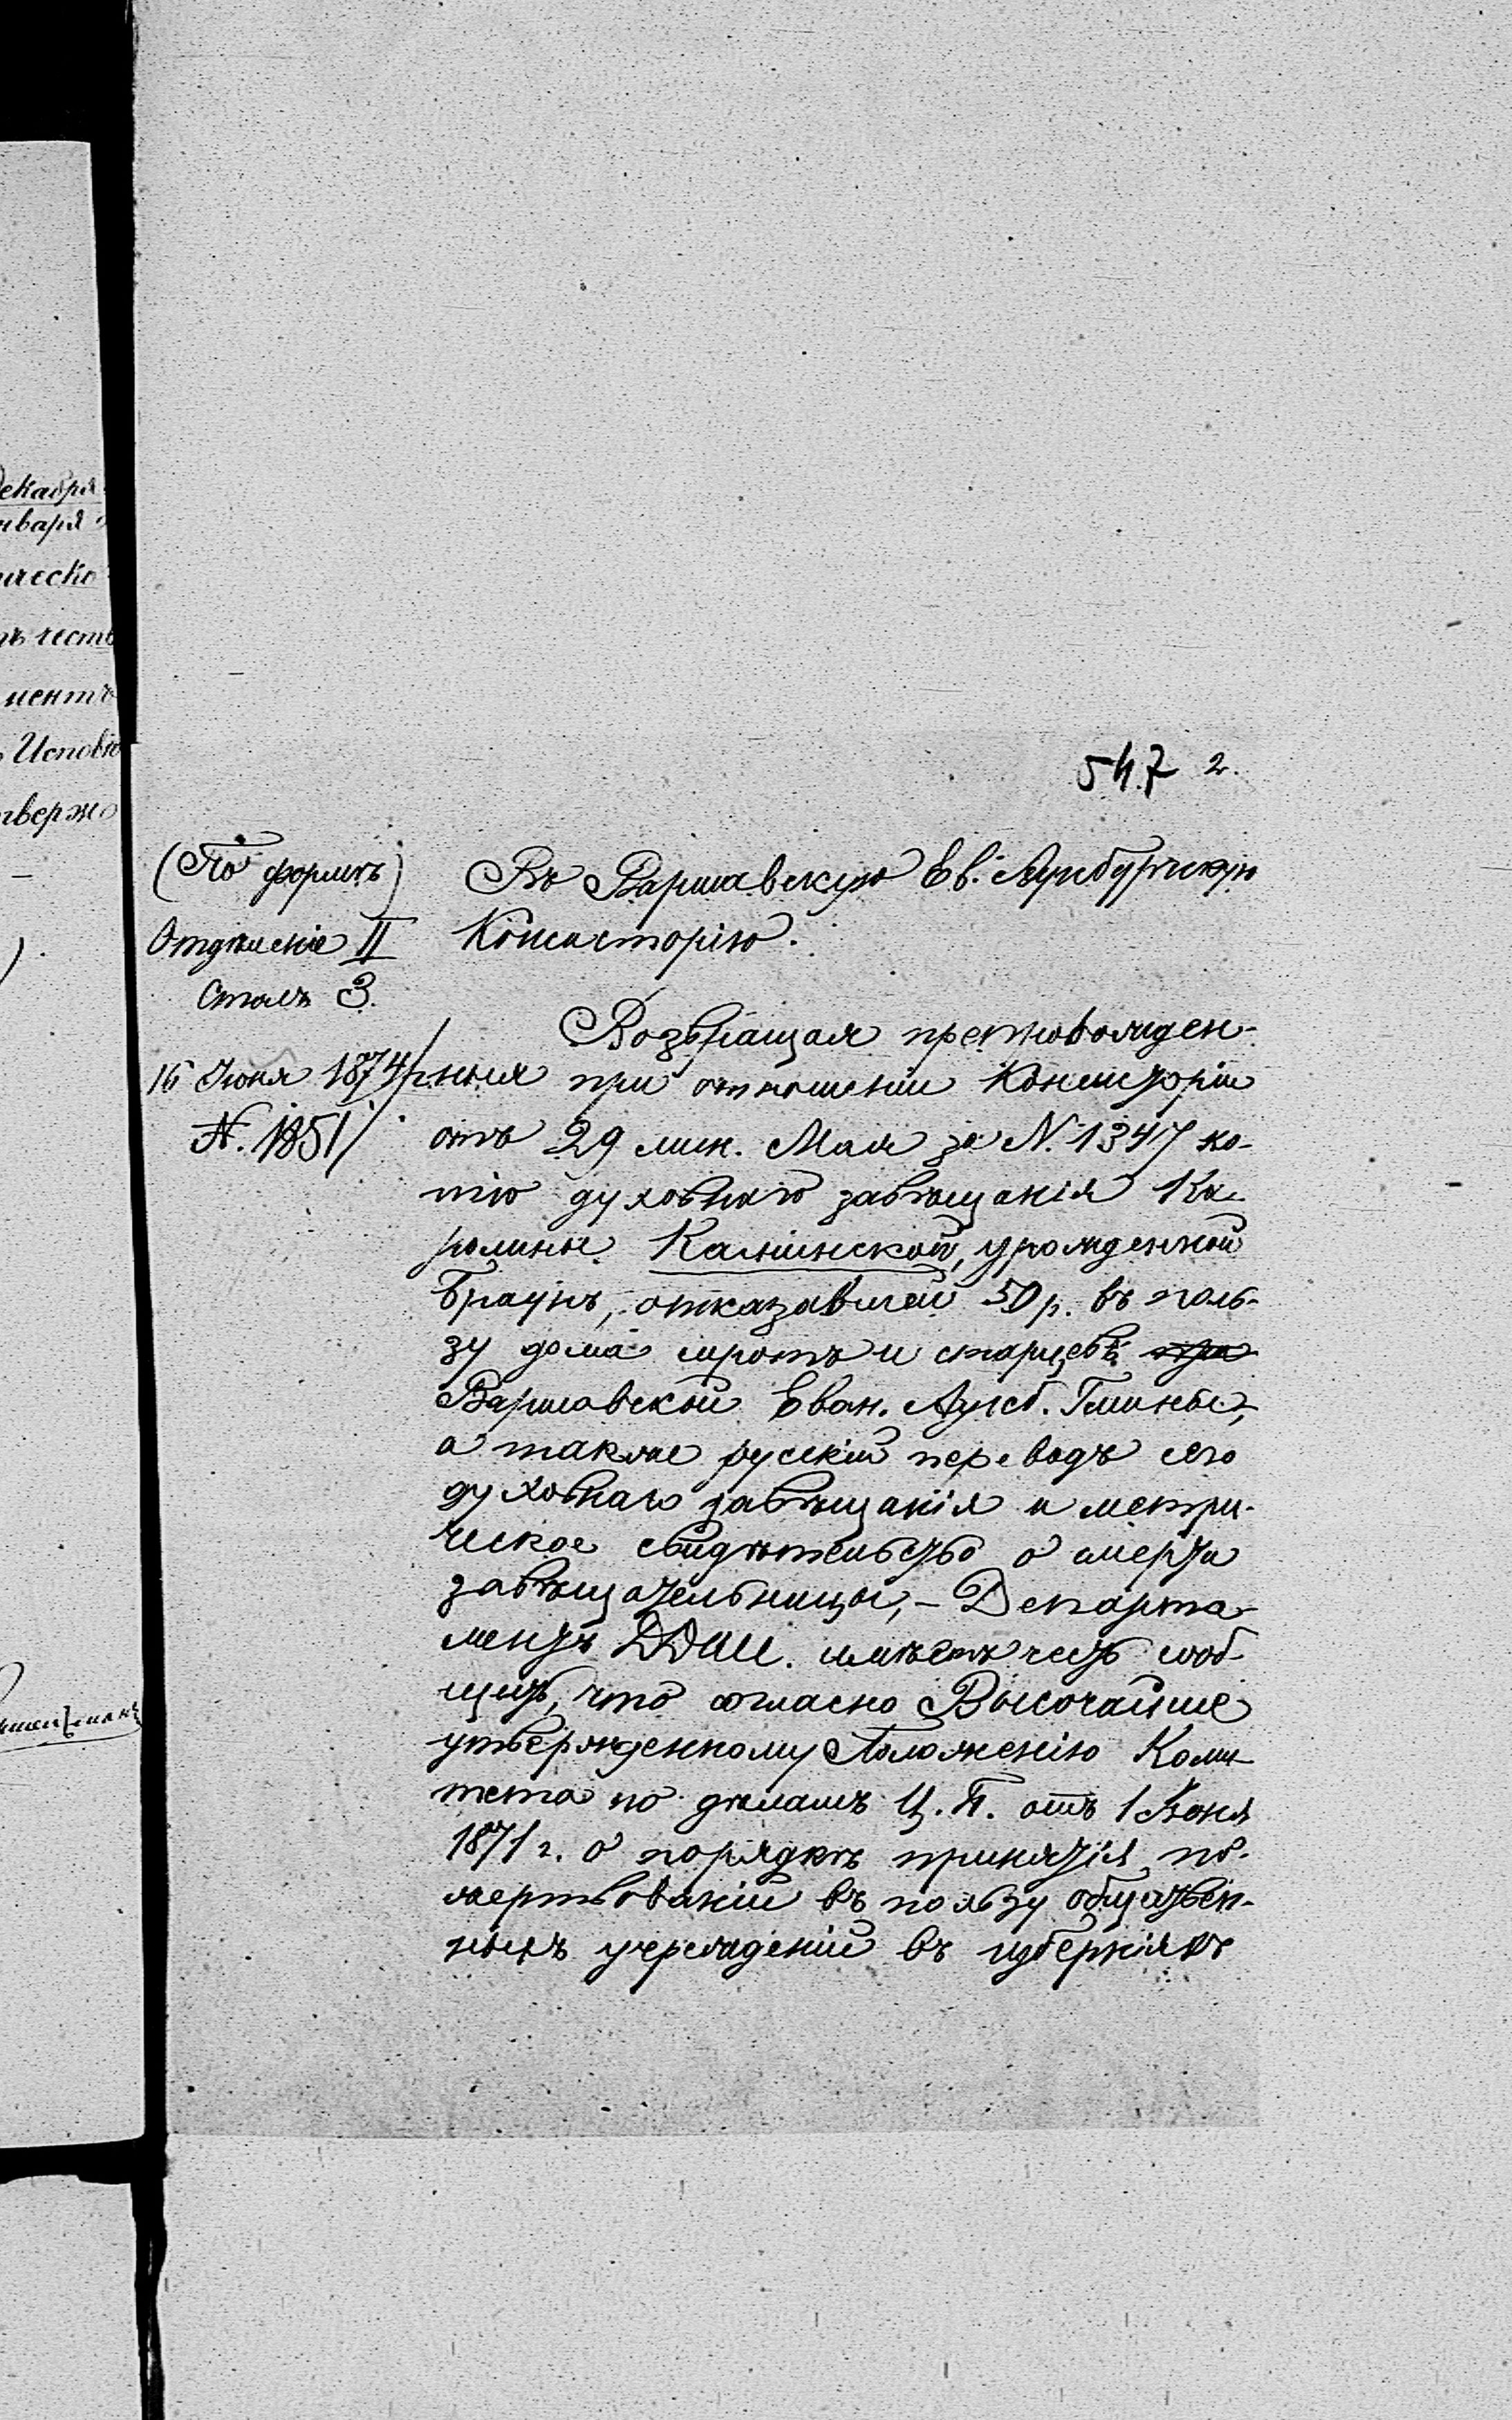 547 2.
(По формѣ)
Отдѣленіе II
Столъ 3.
16 Июня 1874 г.
N. 1851
Въ Варшавскую Ев. Аугсбургскую
Консисторію.
Возвращая препровожден-
ныя при отношеніи Консисторіи
отъ 29 мин. Мая за N. 1347 ко-
пію духовнаго завѣщанія Ка-
ролины Калинской, урожденной
Браунъ, отказавшей 50 р. въ поль-
зу дома сиротъ и старцевъ
Варшавской Еван. Аугсб. Гмины,
а также русскій переводъ сего
духовнаго завѣщанія и метри-
ческое свидѣтельство о смерти
завѣщательницы, – Департа-
ментъ ДДИИ. имѣетъ честь сооб-
щить, что согласно Высочайше
утвержденному Положенію Коми-
тета по дѣламъ Ц. П. отъ 1 Июня
1871 г. о порядкѣ принятія по-
жертвованій въ пользу обществен-
ныхъ учрежденій въ губерніяхъ
екабря
нваря
ческо
ъ честь
ментъ
Исповѣ
твержд